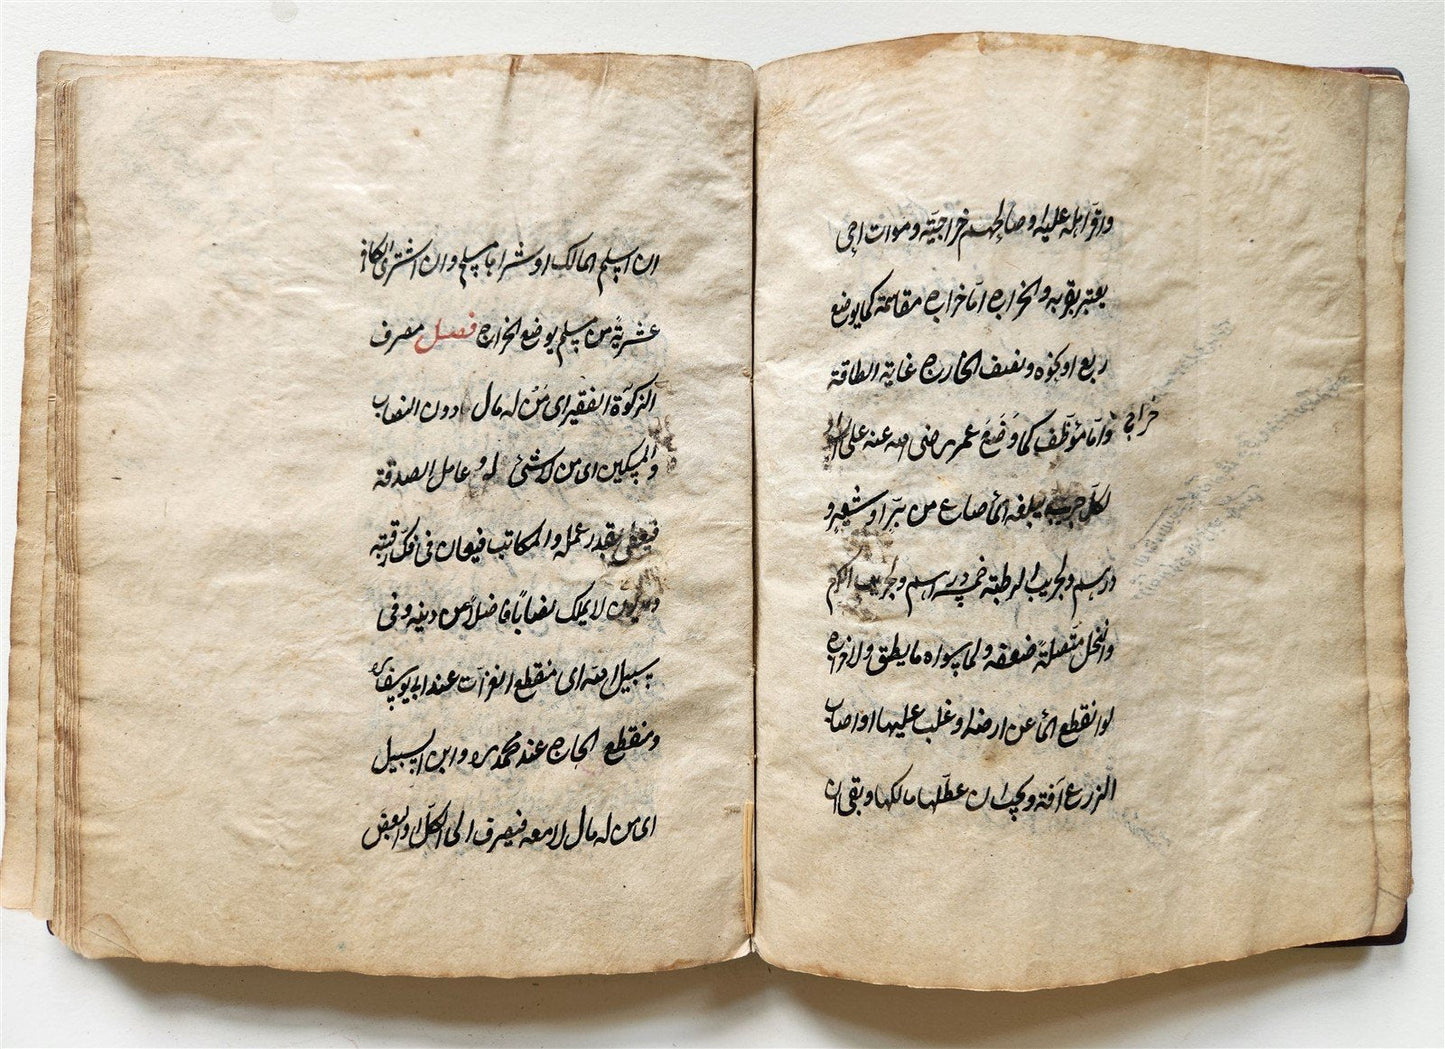 واقرّ اهله عليه او صالحهم خراجيّة وموات احي
يعتبر بقربه والخراج امّا خراج مقاسمة كما يوضع
ربع او نحوه ونصف الخارج غاية الطاقة
وامّا مؤظّف كما وَضَعَ عمر رضى الله عنه على
خراج
لكلّ جريب يبلغه الماء صاع من بُرّ او شعير و
درهم ولجريب الرطبة خمسة دراهم ولجريب الكرم
والنخل متّصلةً ضعفه ولما سواه ما يطيق ولا خراج
لو انقطع الماء عن ارضه او غلب عليها او اصاب
الزرع آفة ويجب ان عطّلها مالكها ويبقى ان
ان اسلم المالك او شراها مسلم وان اشترى الكافر
عشريّة من مسلم يوضع الخراج فصل مصرف
الزكوة الفقير اى مَنْ له مال دون النصاب
والمسكين اى من لا شئ له وعامل الصدقة
فيعطى بقدر عمله والمكاتب فيعان فى فكّ رقبته
ومديون لا يملك نصابًا فاضلاً من دينه وفى
سبيل الله اى منقطع الغزات عند ابى يوسف
ومنقطع الحاج عند محمد وابن السبيل
اى من له مال لا معه فيصرف الى الكلّ او البعض